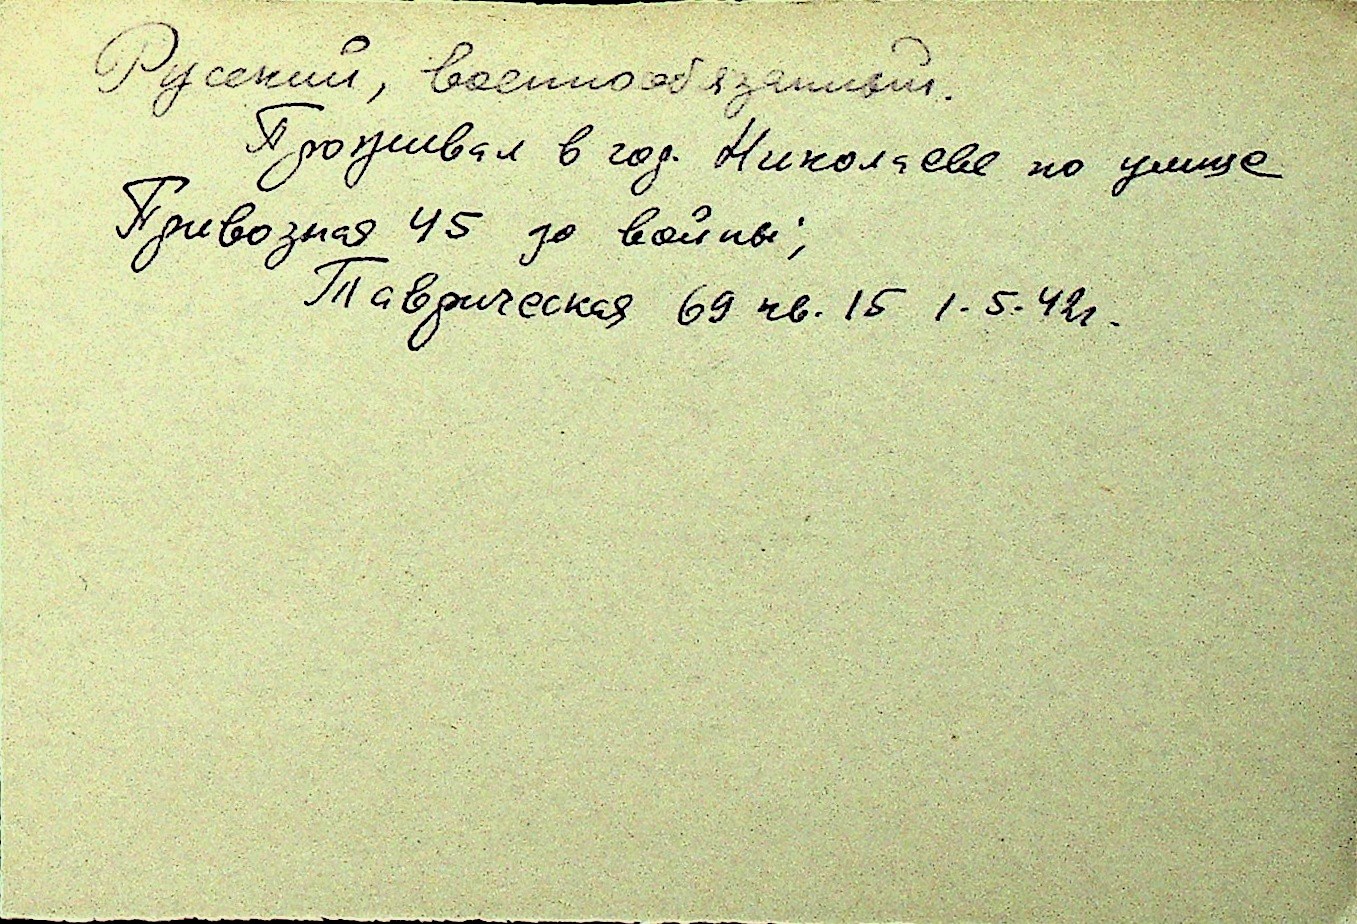 Русский, военнообязанный.
Проживал в гор. Николаеве по улице
Привозная 45 до войны;
Таврическая 69 кв. 15 1.5.42г.